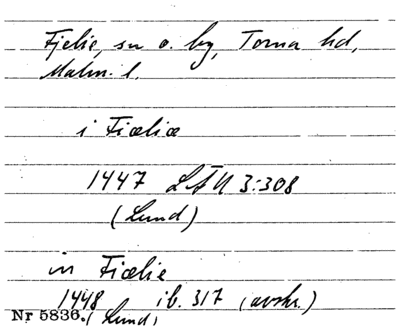 Fjelie, sn o. by, Torna hd,
Malm. l.
i Fiæliæ
1447 LÄU 3:308
(Lund)
in Fiælie
1448 ib. 317 (avskr.)
Nr 5836. (Lund)